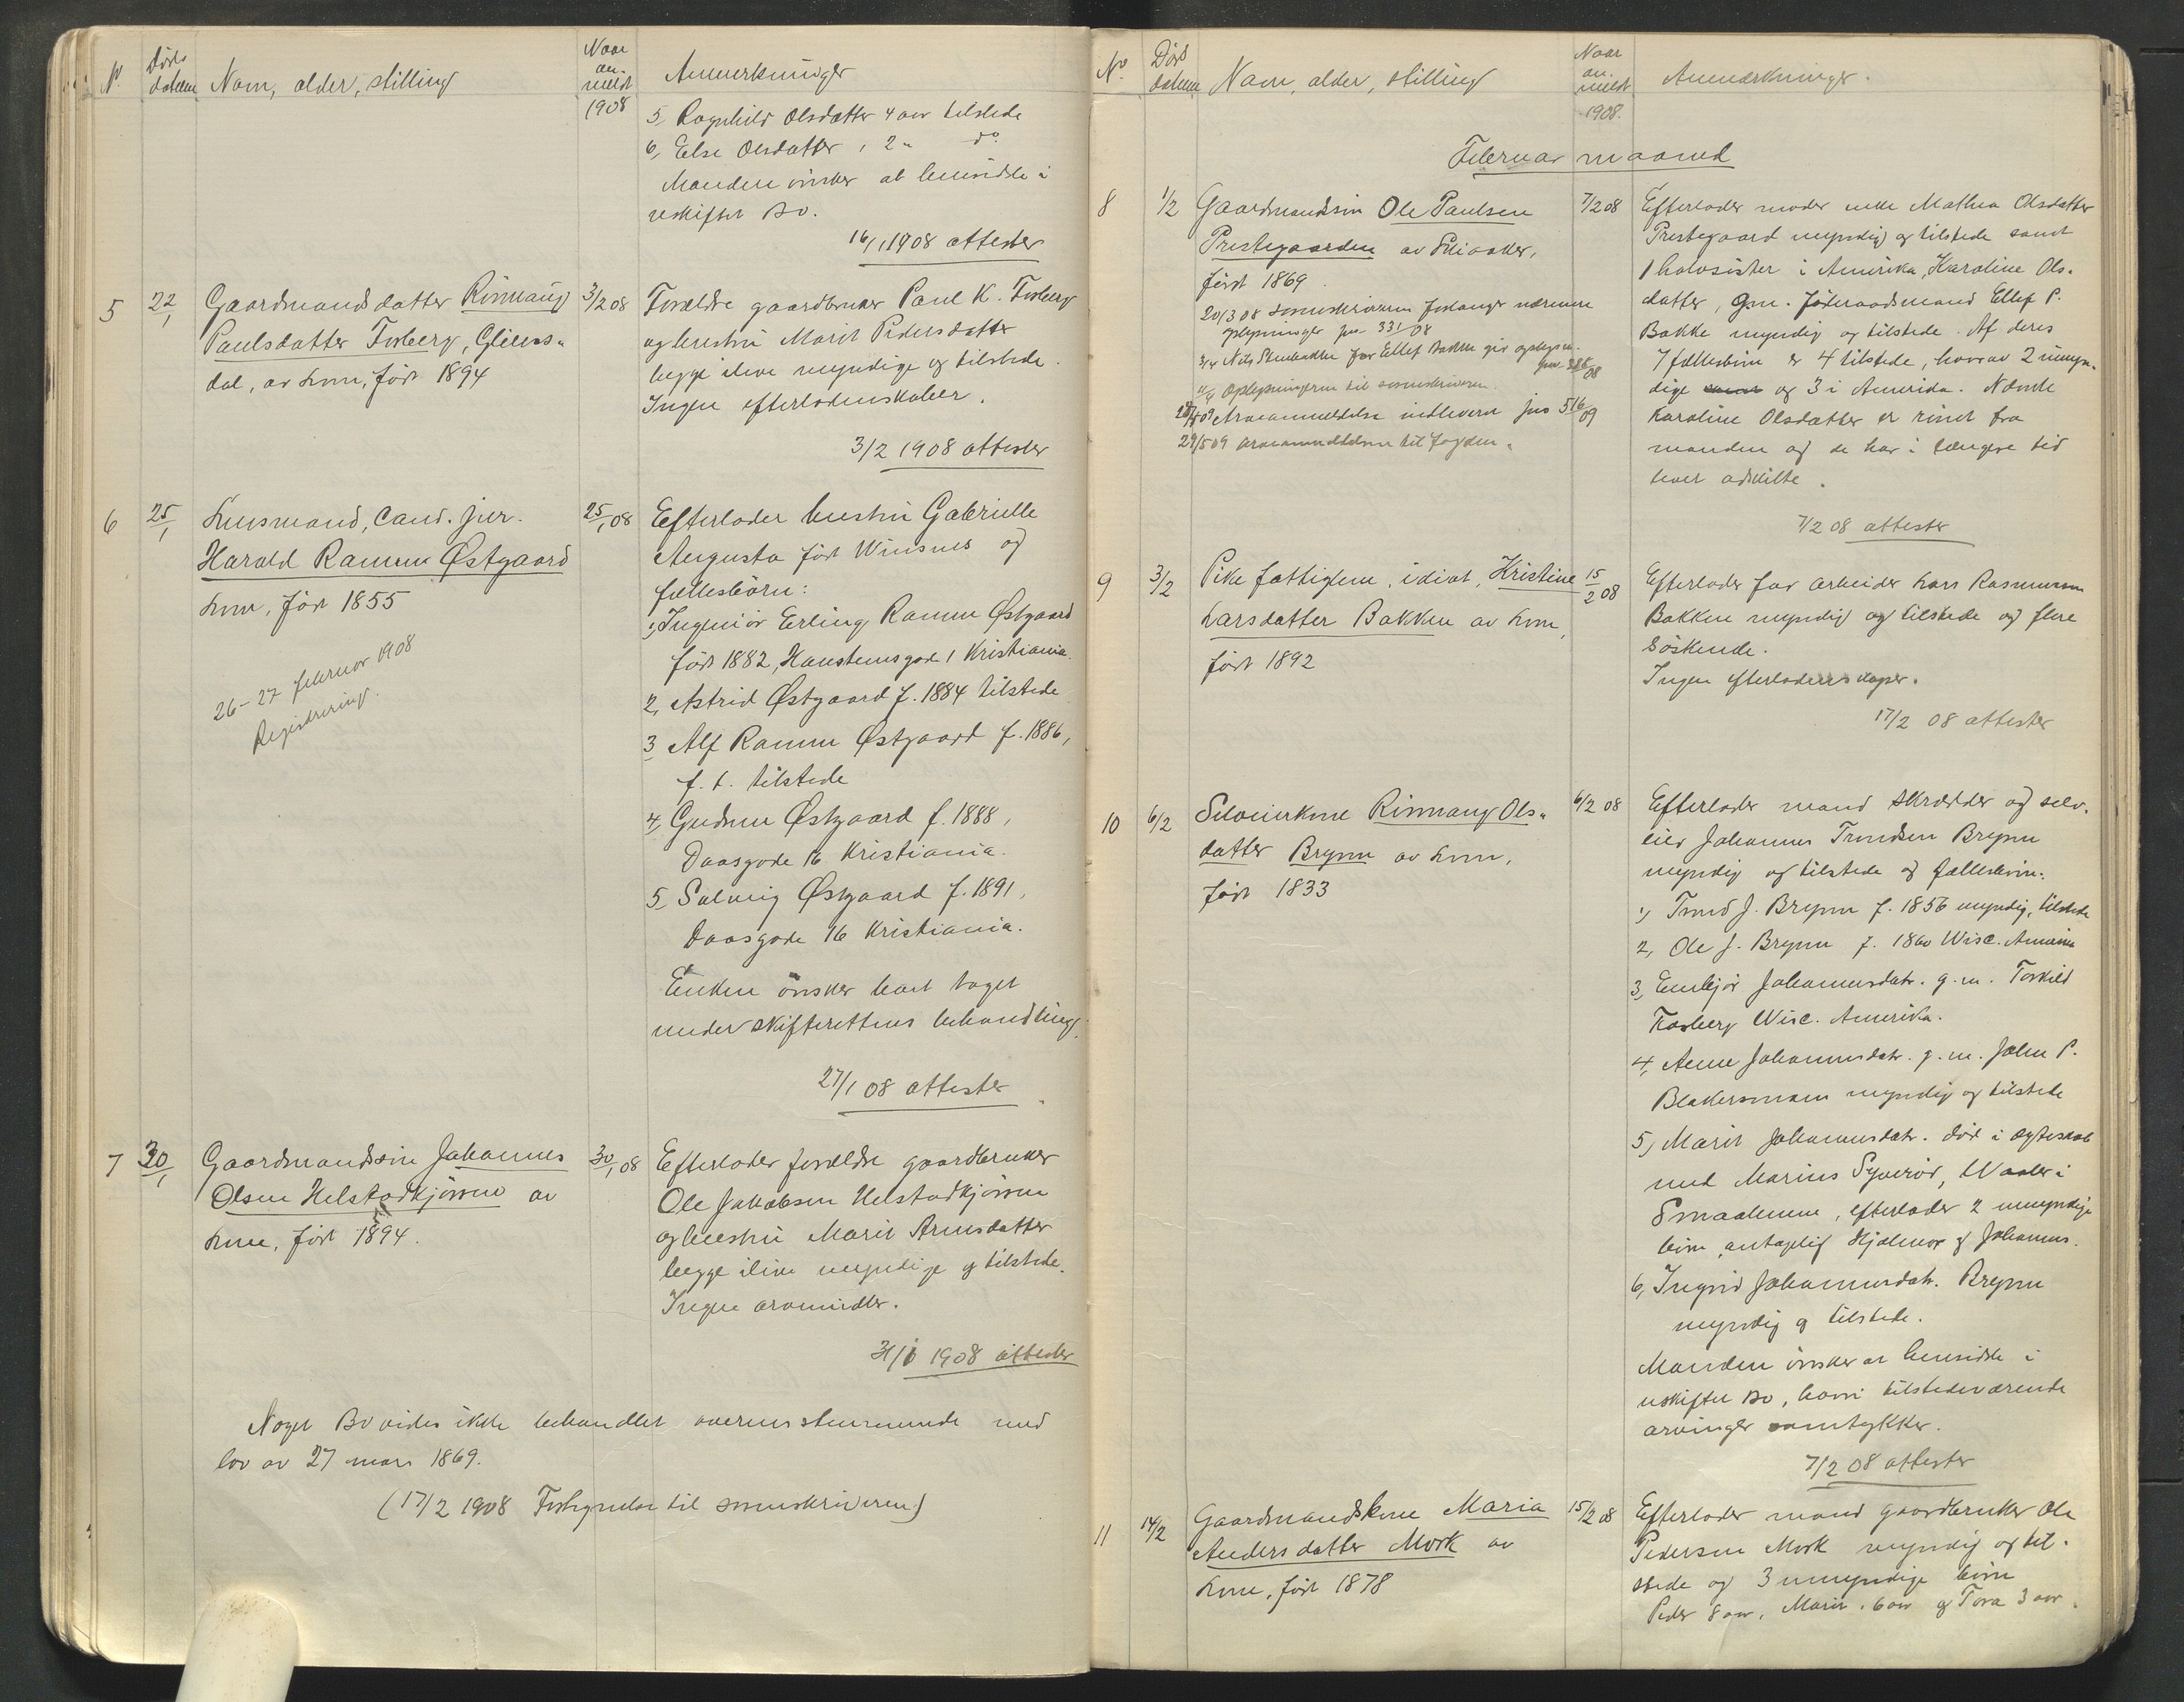 No.
Døds
datum
Navn, alder, stilling
Naar
an-
meldt
1908
Anmerkninger
5, Ragnhild Olsdatter 4 aar tilstede
6, Else Olsdatter, 2 " do.
Manden ønsker at hensidde i
uskiftet Bo.
16/1 1908 attester
5
22/1
Gaardmandsdatter Rønnaug
Paulsdatter Forberg,
dal, av Lom, født 1894
3/2 08
Forældre gaardbruker Paul K. Forberg
og hustru Marit Pedersdatter
begge ilive myndige og tilstede.
Ingen efterladenskaber.
3/2 1908 attester
6
25/1
Lensmand, Cand. jur.
Harald Ramm Østgaard
Lom, født 1855
26-27 februar 1908
Registrering.
25/1 08
Efterlader hustru Gabrielle
Augusta født Winsnes og
fællesbörn:
1, Ingeniør Erling Ramm Østgaard
født 1882, Hansteensgade 1 Kristiania.
2, Astrid Østgaard f. 1884 tilstede
3 Alf Ramm Østgaard f. 1886,
f. t. tilstede
4, Gudrun Østgaard f. 1888,
Daasgade 16 Kristiania.
5, Solveig Østgaard f. 1891,
Daasgade 16 Kristiania.
Enken ønsker boet taget
under skifterettens behandling.
27/1 08 attester
7
30/1
Gaardmandssøn Johannes
Olsen Helstadkjønnen av
Lom, født 1894.
30/1 08
Efterlader forældre gaardbruker
Ole Jakobsen Helstadkjønnen
og hustru Marit Arnesdatter
begge ilive myndige og tilstede.
Ingen arvemidler.
31/1 1908 attester
Noget Bo vides ikke behandlet overensstemmende med
lov av 27 mars 1869.
(17/2 1908 Fortegnelse til sorenskriveren)
No.
Døds
datum
Navn, alder, stilling
Naar
an-
meldt
1908.
Anmerkninger.
Februar maaned
8
1/2
Gaardmandssøn Ole Paulsen
Prestegaarden av Skiaaker,
født 1869
20/3 08 sorenskriveren forlanger nærmere
oplysninger jnr. 331/08
3/4 Nils for Ellef Bakke gir oplysn.
jnr. 08
11/4 Oplysningerne til sorenskriveren.
09 Arveanmeldelse indleveret jno 516/09
29/5 09 arveanmeldelsen til fogden.
7/2 08
Efterlader moder enke Mathea Olsdatter
Prestegaard myndig og tilstede samt
1 halvsøster i Amerika, Karoline Ols-
datter, gm. føderaadsmand Ellef P.
Bakke myndig og tilstede. Af deres
7 fællesbørn er 4 tilstede, hvorav 2 umyn-
dige samt og 3 i Amerika. Nævnte
Karoline Olsdatter er reist fra
manden og de har i længere tid
levet adskilte.
7/2 08 attester
9
3/2
Pike fattiglem, idiot, Kristine
Larsdatter Bakken av Lom,
født 1892
15/2 08
Efterlader far arbeider Lars Rasmussen
Bakken myndig og tilstede og flere
Søskende.
Ingen efterladenskaper.
17/2 08 attester
10
6/2
Selveierkone Rønnaug Ols-
datter Brynn av Lom,
født 1833
6/2 08
Efterlader mand skrædder og selv-
eier Johannes Trondsen Brynn
myndig og tilstede og fællesbørn:
1, Trond J. Brynn f. 1856 myndig, tilstede
2, Ole J. Brynn f. 1860 Wisc. Amerika
3, Embjør Johannesdatr. g.m. Torkild
Wisc. Amerika.
4, Anne Johannesdatr. g.m. John P.
Blakersmoen myndig og tilstede
5, Marit Johannesdatr. død i ægteskab
med Marius Syverød, Waaler i
Smaalenene, efterlader 2 umyndige
børn, antagelig Hjalmar og Johannes.
6, Ingrid Johannesdatr. Brynn
myndig og tilstede.
Manden ønsker at hensidde i
uskiftet Bo, hvori tilstedeværende
arvinger samtykker.
7/2 08 attester
11
14/2
Gaardmandskone Maria
Andersdatter Mork av
Lom, født 1878
15/2 08
Efterlader mand gaardbruker Ole
Pedersen Mork myndig og til-
stede og 3 umyndige børn
Peder 8 aar, Marit, 6 aar og Tora 3 aar.